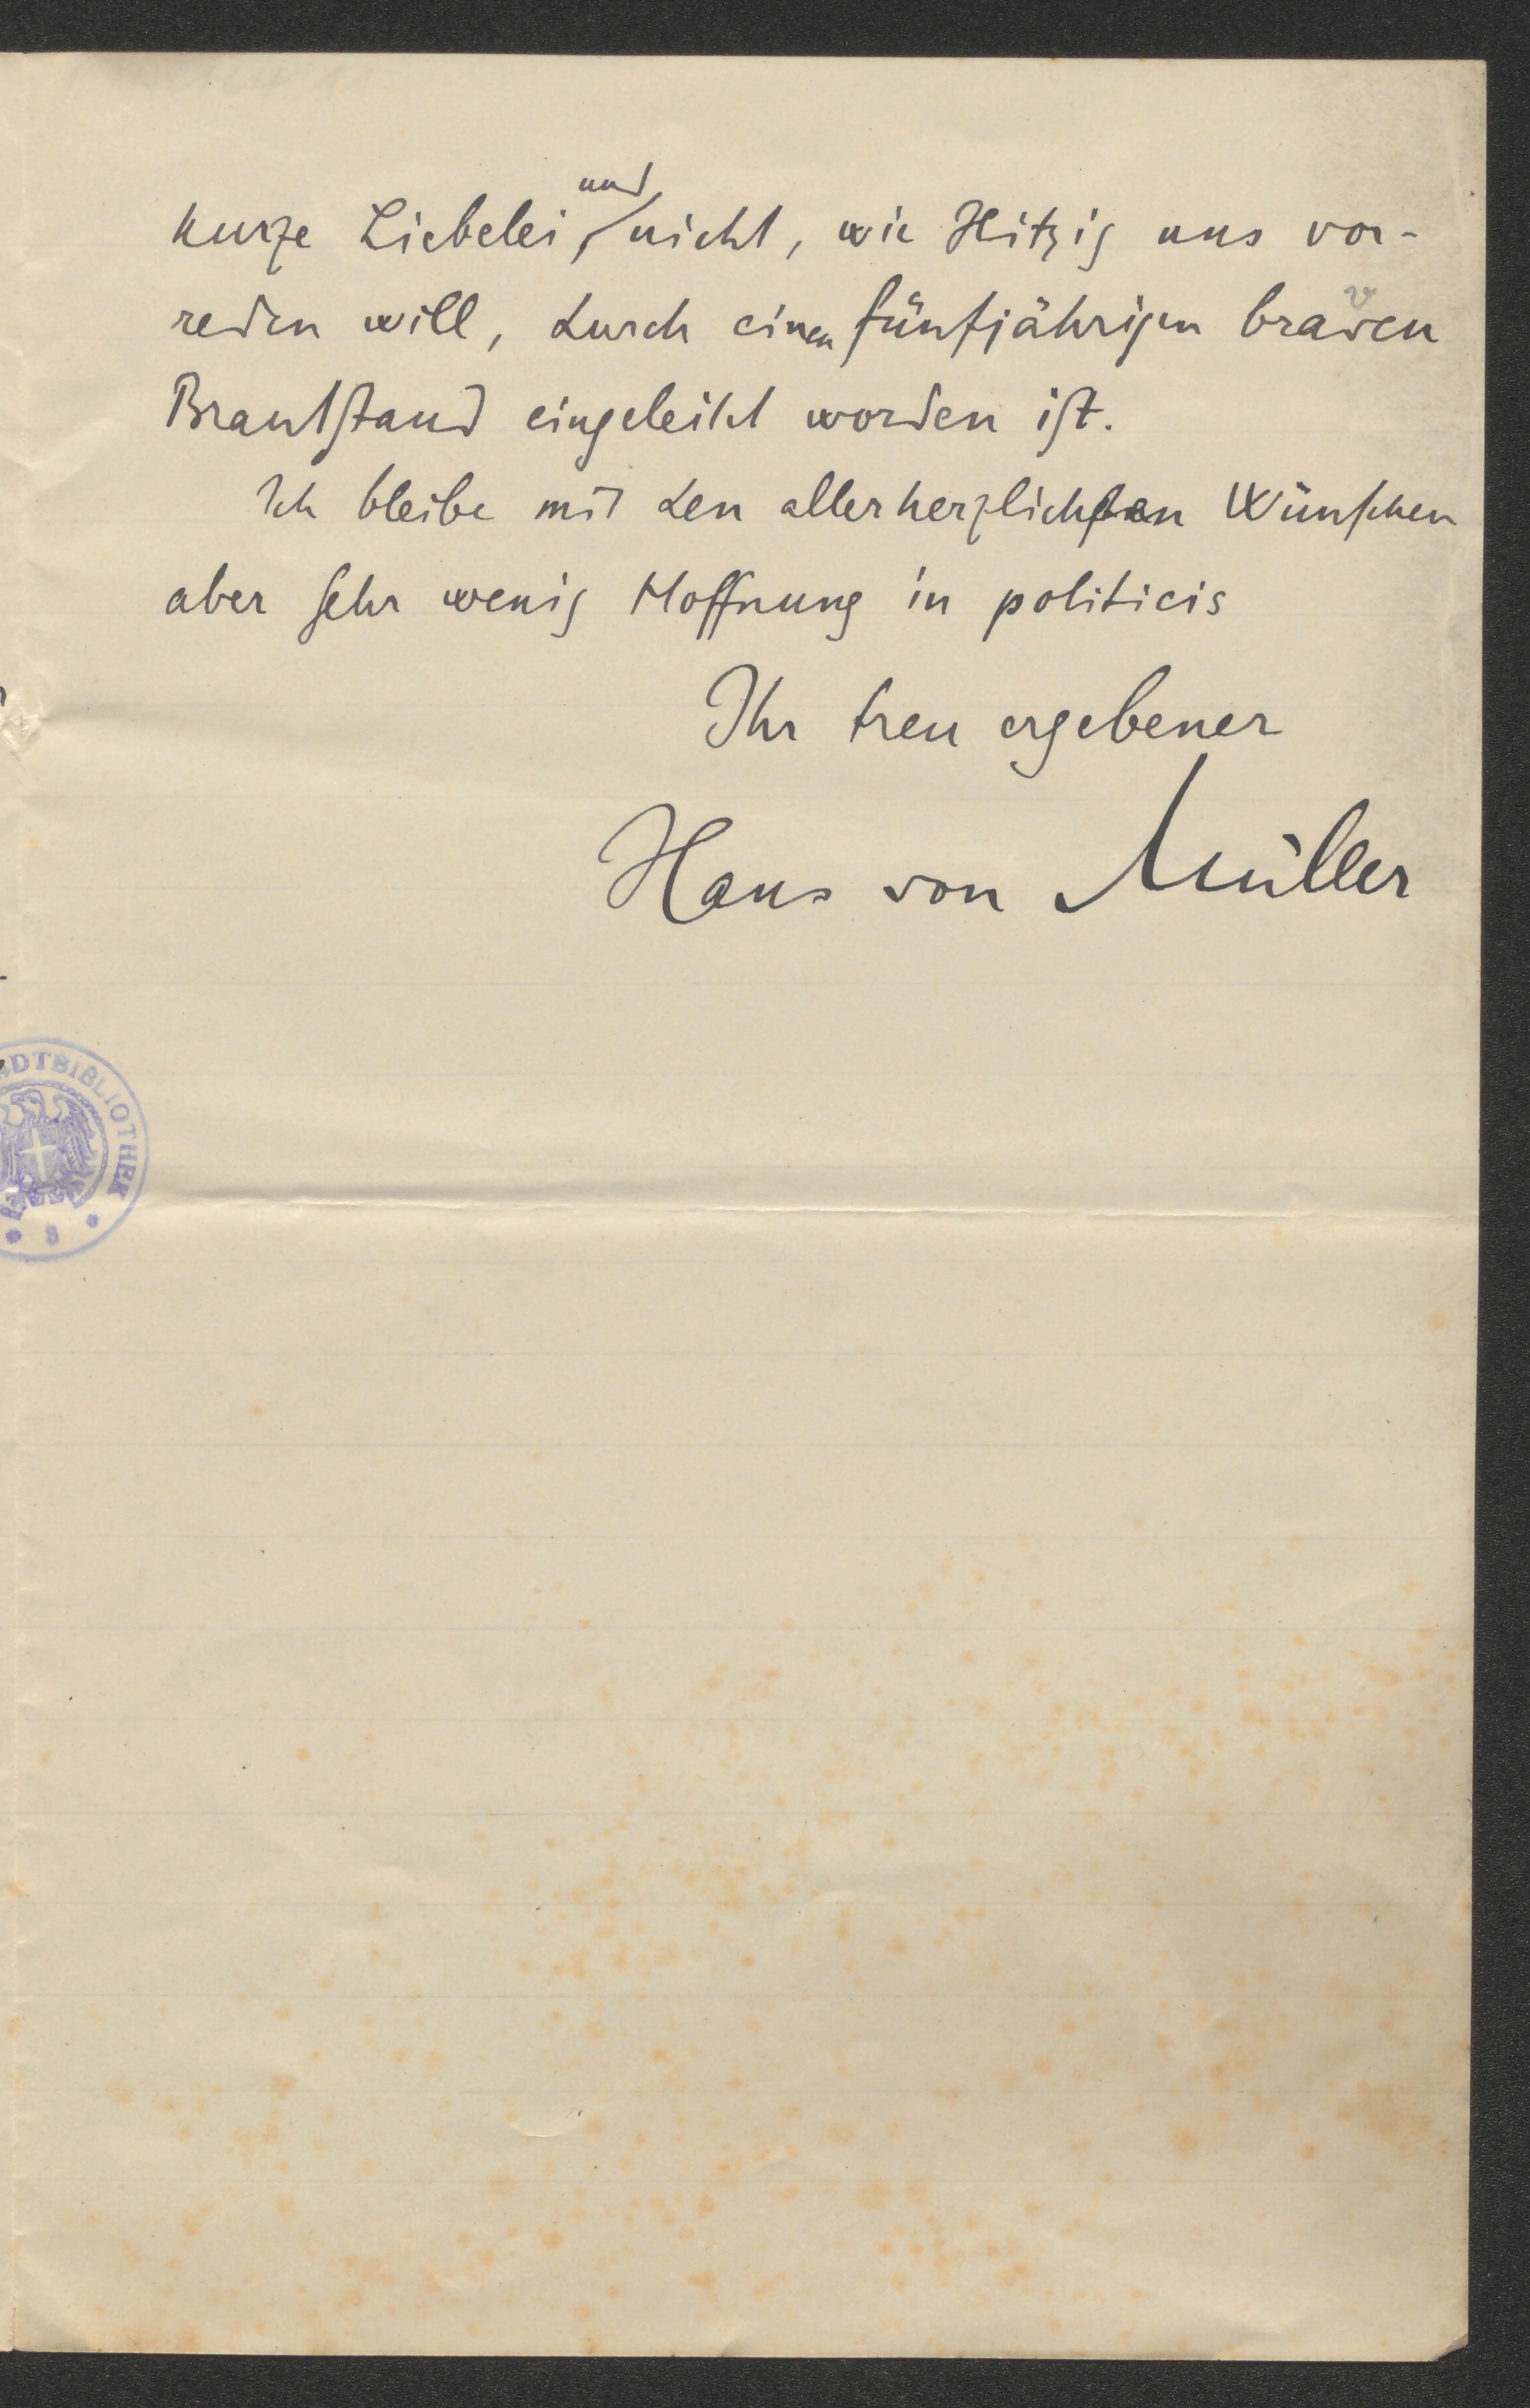 kurze Liebelei, und nicht, wie Hitzig uns vor-
reden will, durch einen fünfjährigen braven
v
Brautstand eingeleitet worden ist.
Ich bleibe mit den allerherzlichsten Wünschen
aber sehr wenig Hoffnung in politicis
Ihr treu ergebener
Hans von Müller
DTBIBLIOTHEK
8